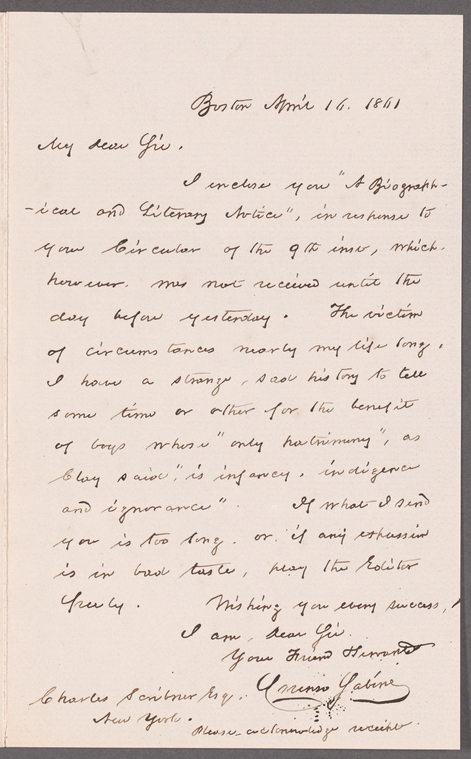 Boston April 16. 1861
My dear Sir.
I enclose you "A Biograph-
-ical and Literary Notice", in response to
your Circular of the 9th inst, which.
however. was not received until the
day before yesterday. The victim
of circumstances nearly my life long,
I have a strange, sad history to tell
some time or other for the benefit
of boys whose "only patrimony", as
Clay said, "is infancy, indigence
and ignorance". If what I send
you is too long. or if any expression
is in bad taste, play the Editor
freely. Wishing you every success,
I am, dear Sir.
Your Friend & Servant
Lorenzo Sabine
Charles Scribner Esq.
New York.
Please acknowledge receipt.